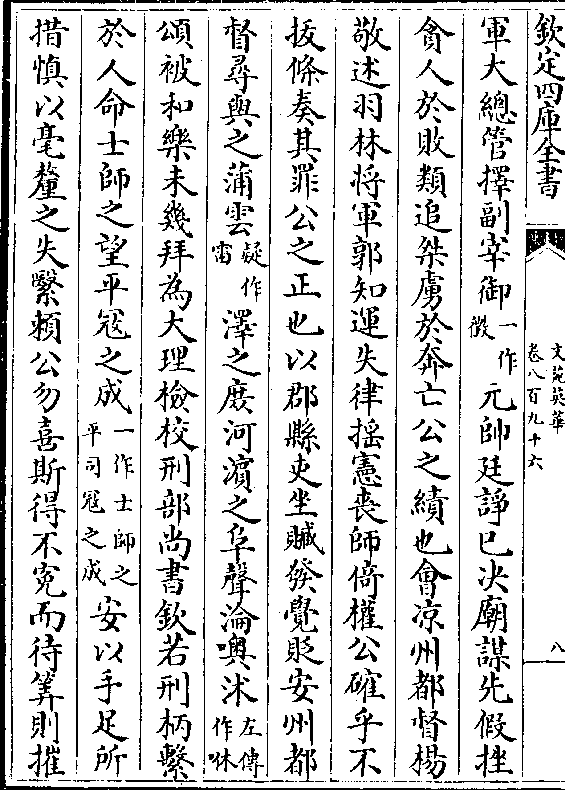 欽定四庫全書
文苑英華
卷八百九十六
八
軍大總管擇副宰御一作徴元帥廷諍已决廟謀先假挫
貪人於敗類追桀虜於奔亡公之績也會凉州都督楊
敬述羽林将軍郭知運失律揺憲喪師倚權公確乎不
抜條奏其罪公之正也以郡縣吏坐贓發覺貶安州都
督尋與之蒲雲疑作雷澤之廏河濵之阜聲淪噢沐左傳作咻
頌被和樂未幾拜為大理檢校刑部尚書欽若刑柄繫
於人命士師之望平冦之成一作士師之平司冦之成安以手足所
措慎以毫釐之失繄頼公勿喜斯得不寃而待筭則摧